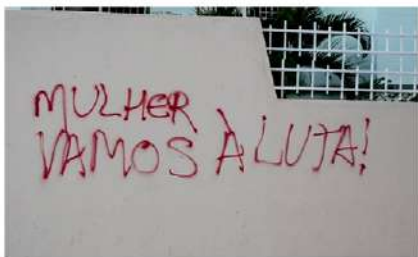 MULHER
VAMOS À LUTA!